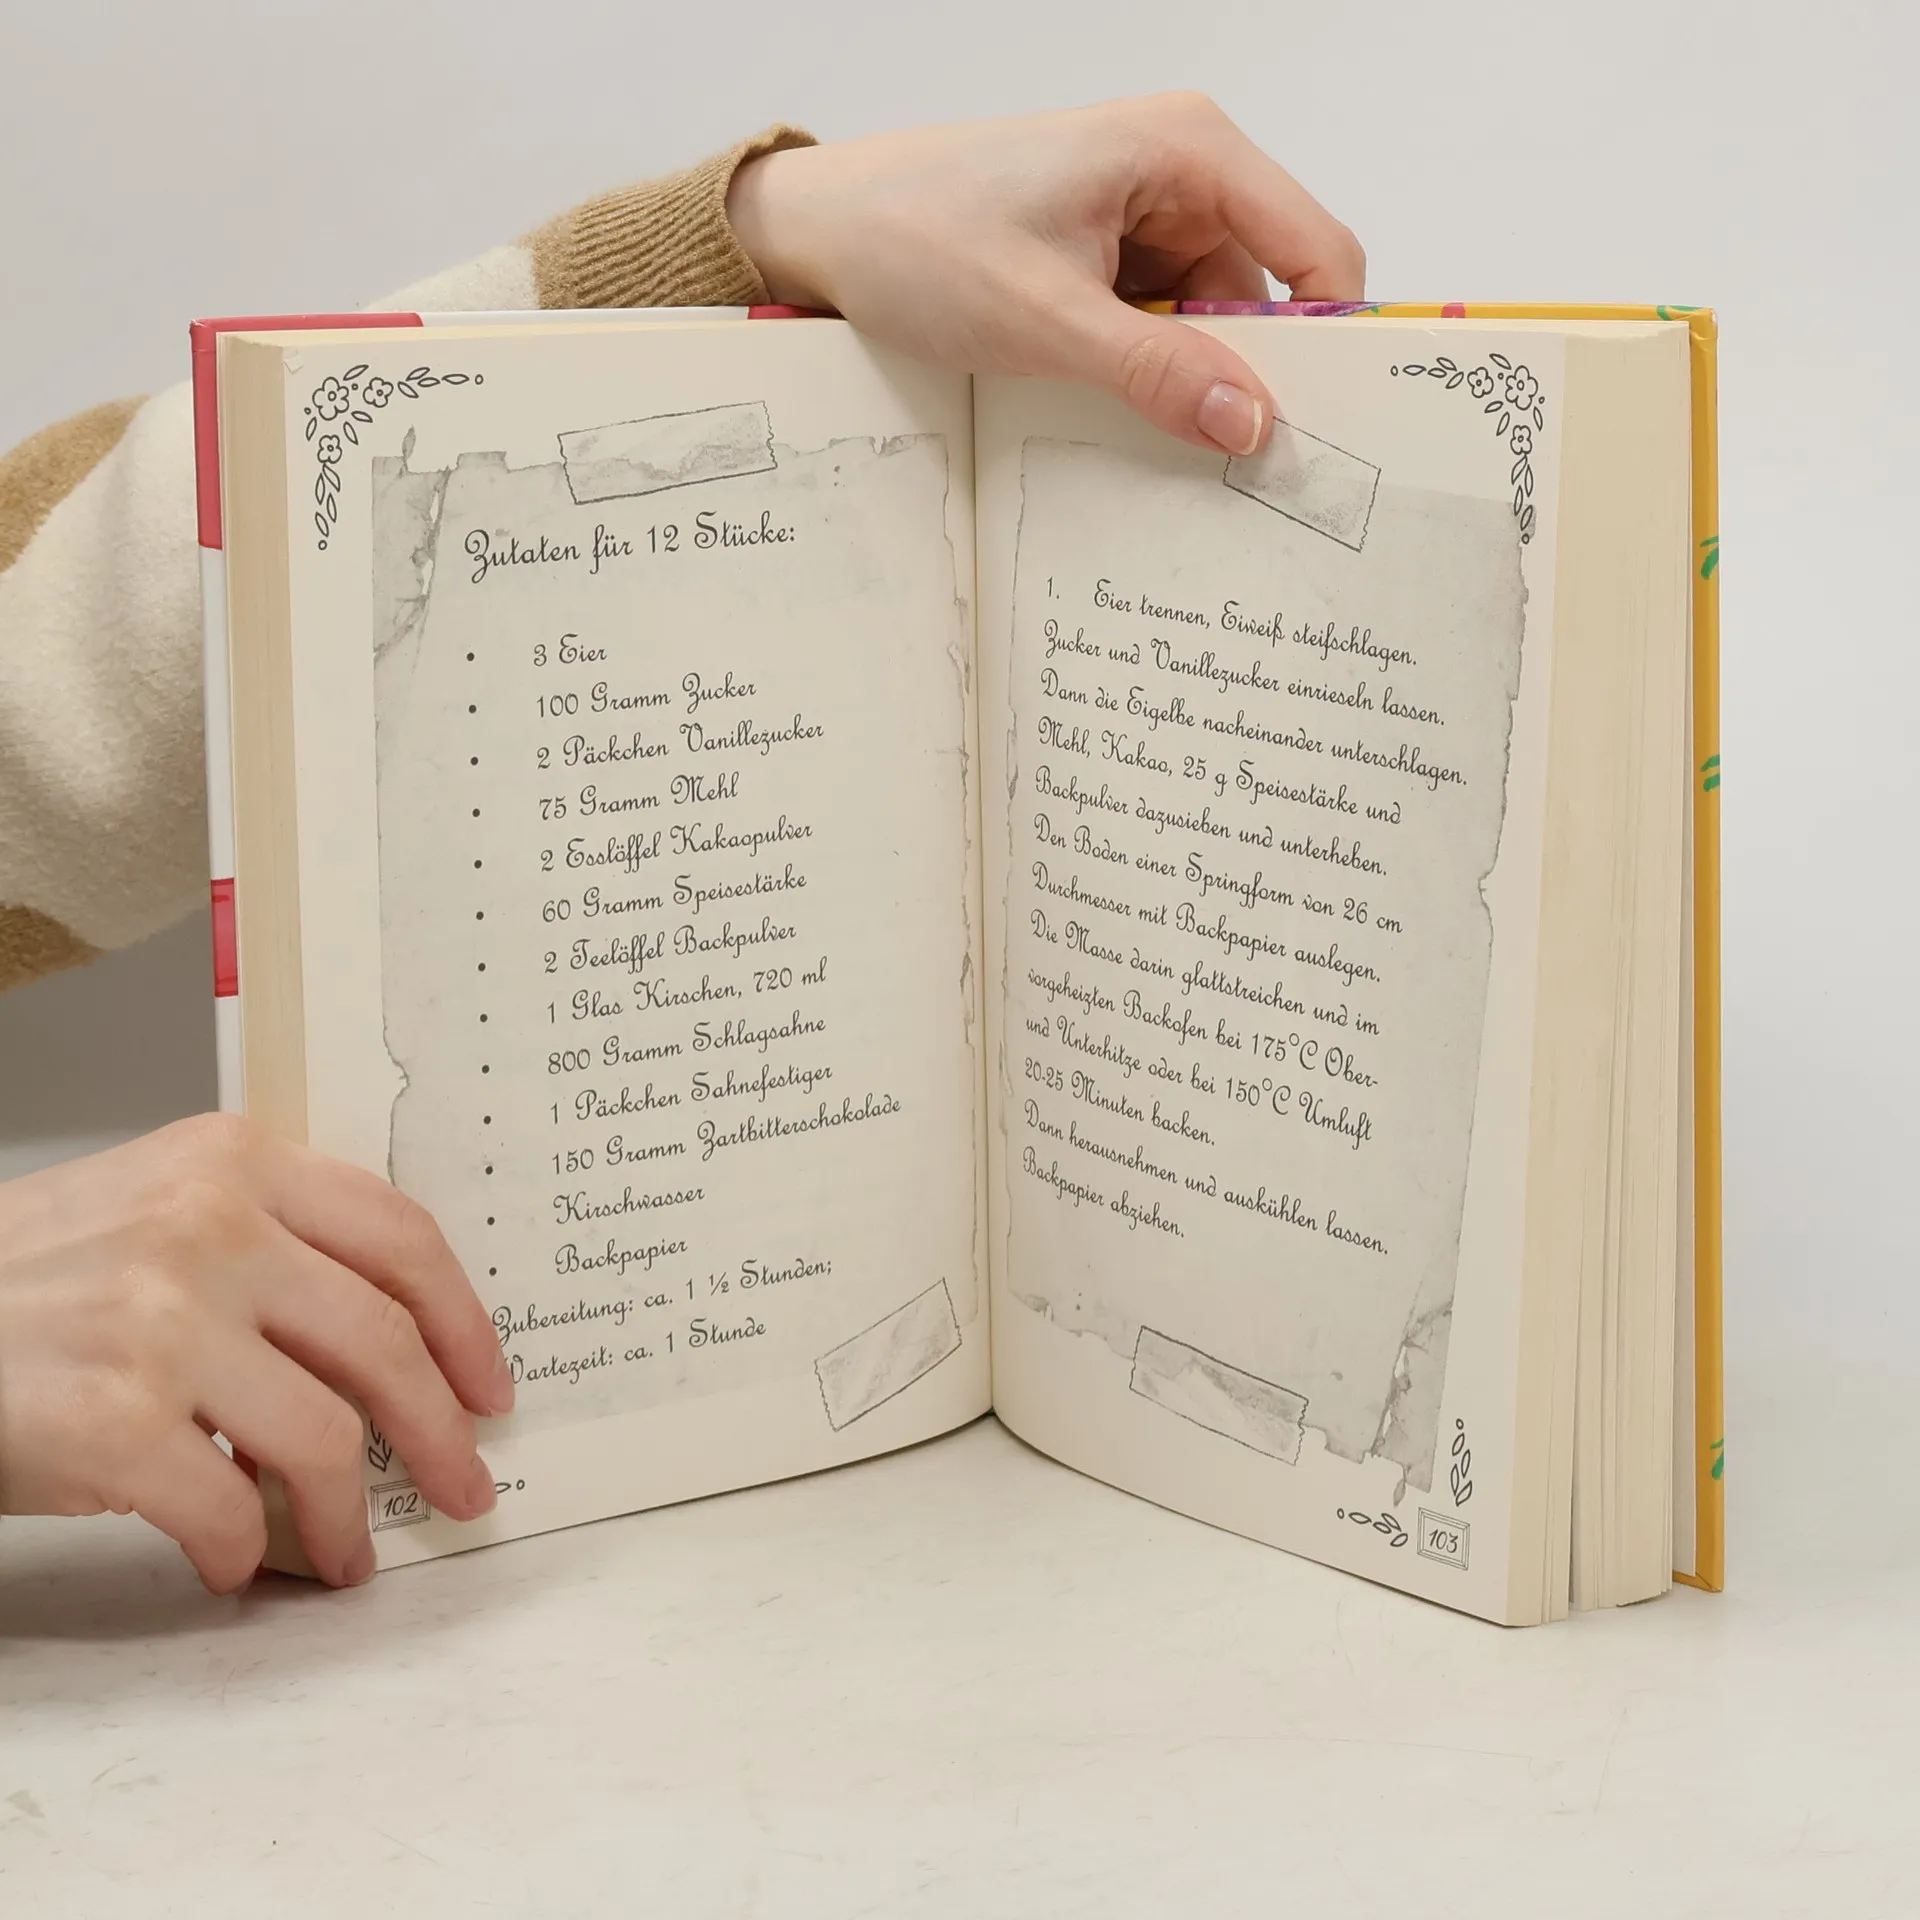 Zutaten für 12 Stücke:
• 3 Eier
• 100 Gramm Zucker
• 2 Päckchen Vanillezucker
• 75 Gramm Mehl
• 2 Esslöffel Kakaopulver
• 60 Gramm Speisestärke
• 2 Teelöffel Backpulver
• 1 Glas Kirschen, 720 ml
• 800 Gramm Schlagsahne
• 1 Päckchen Sahnefestiger
• 150 Gramm Zartbitterschokolade
• Kirschwasser
• Backpapier
Zubereitung: ca. 1 ½ Stunden;
Wartezeit: ca. 1 Stunde
102
1. Eier trennen, Eiweiß steifschlagen.
Zucker und Vanillezucker einrieseln lassen.
Dann die Eigelbe nacheinander unterschlagen.
Mehl, Kakao, 25 g Speisestärke und
Backpulver dazusieben und unterheben.
Den Boden einer Springform von 26 cm
Durchmesser mit Backpapier auslegen.
Die Masse darin glattstreichen und im
vorgeheizten Backofen bei 175°C Ober-
und Unterhitze oder bei 150°C Umluft
20-25 Minuten backen.
Dann herausnehmen und auskühlen lassen.
Backpapier abziehen.
103